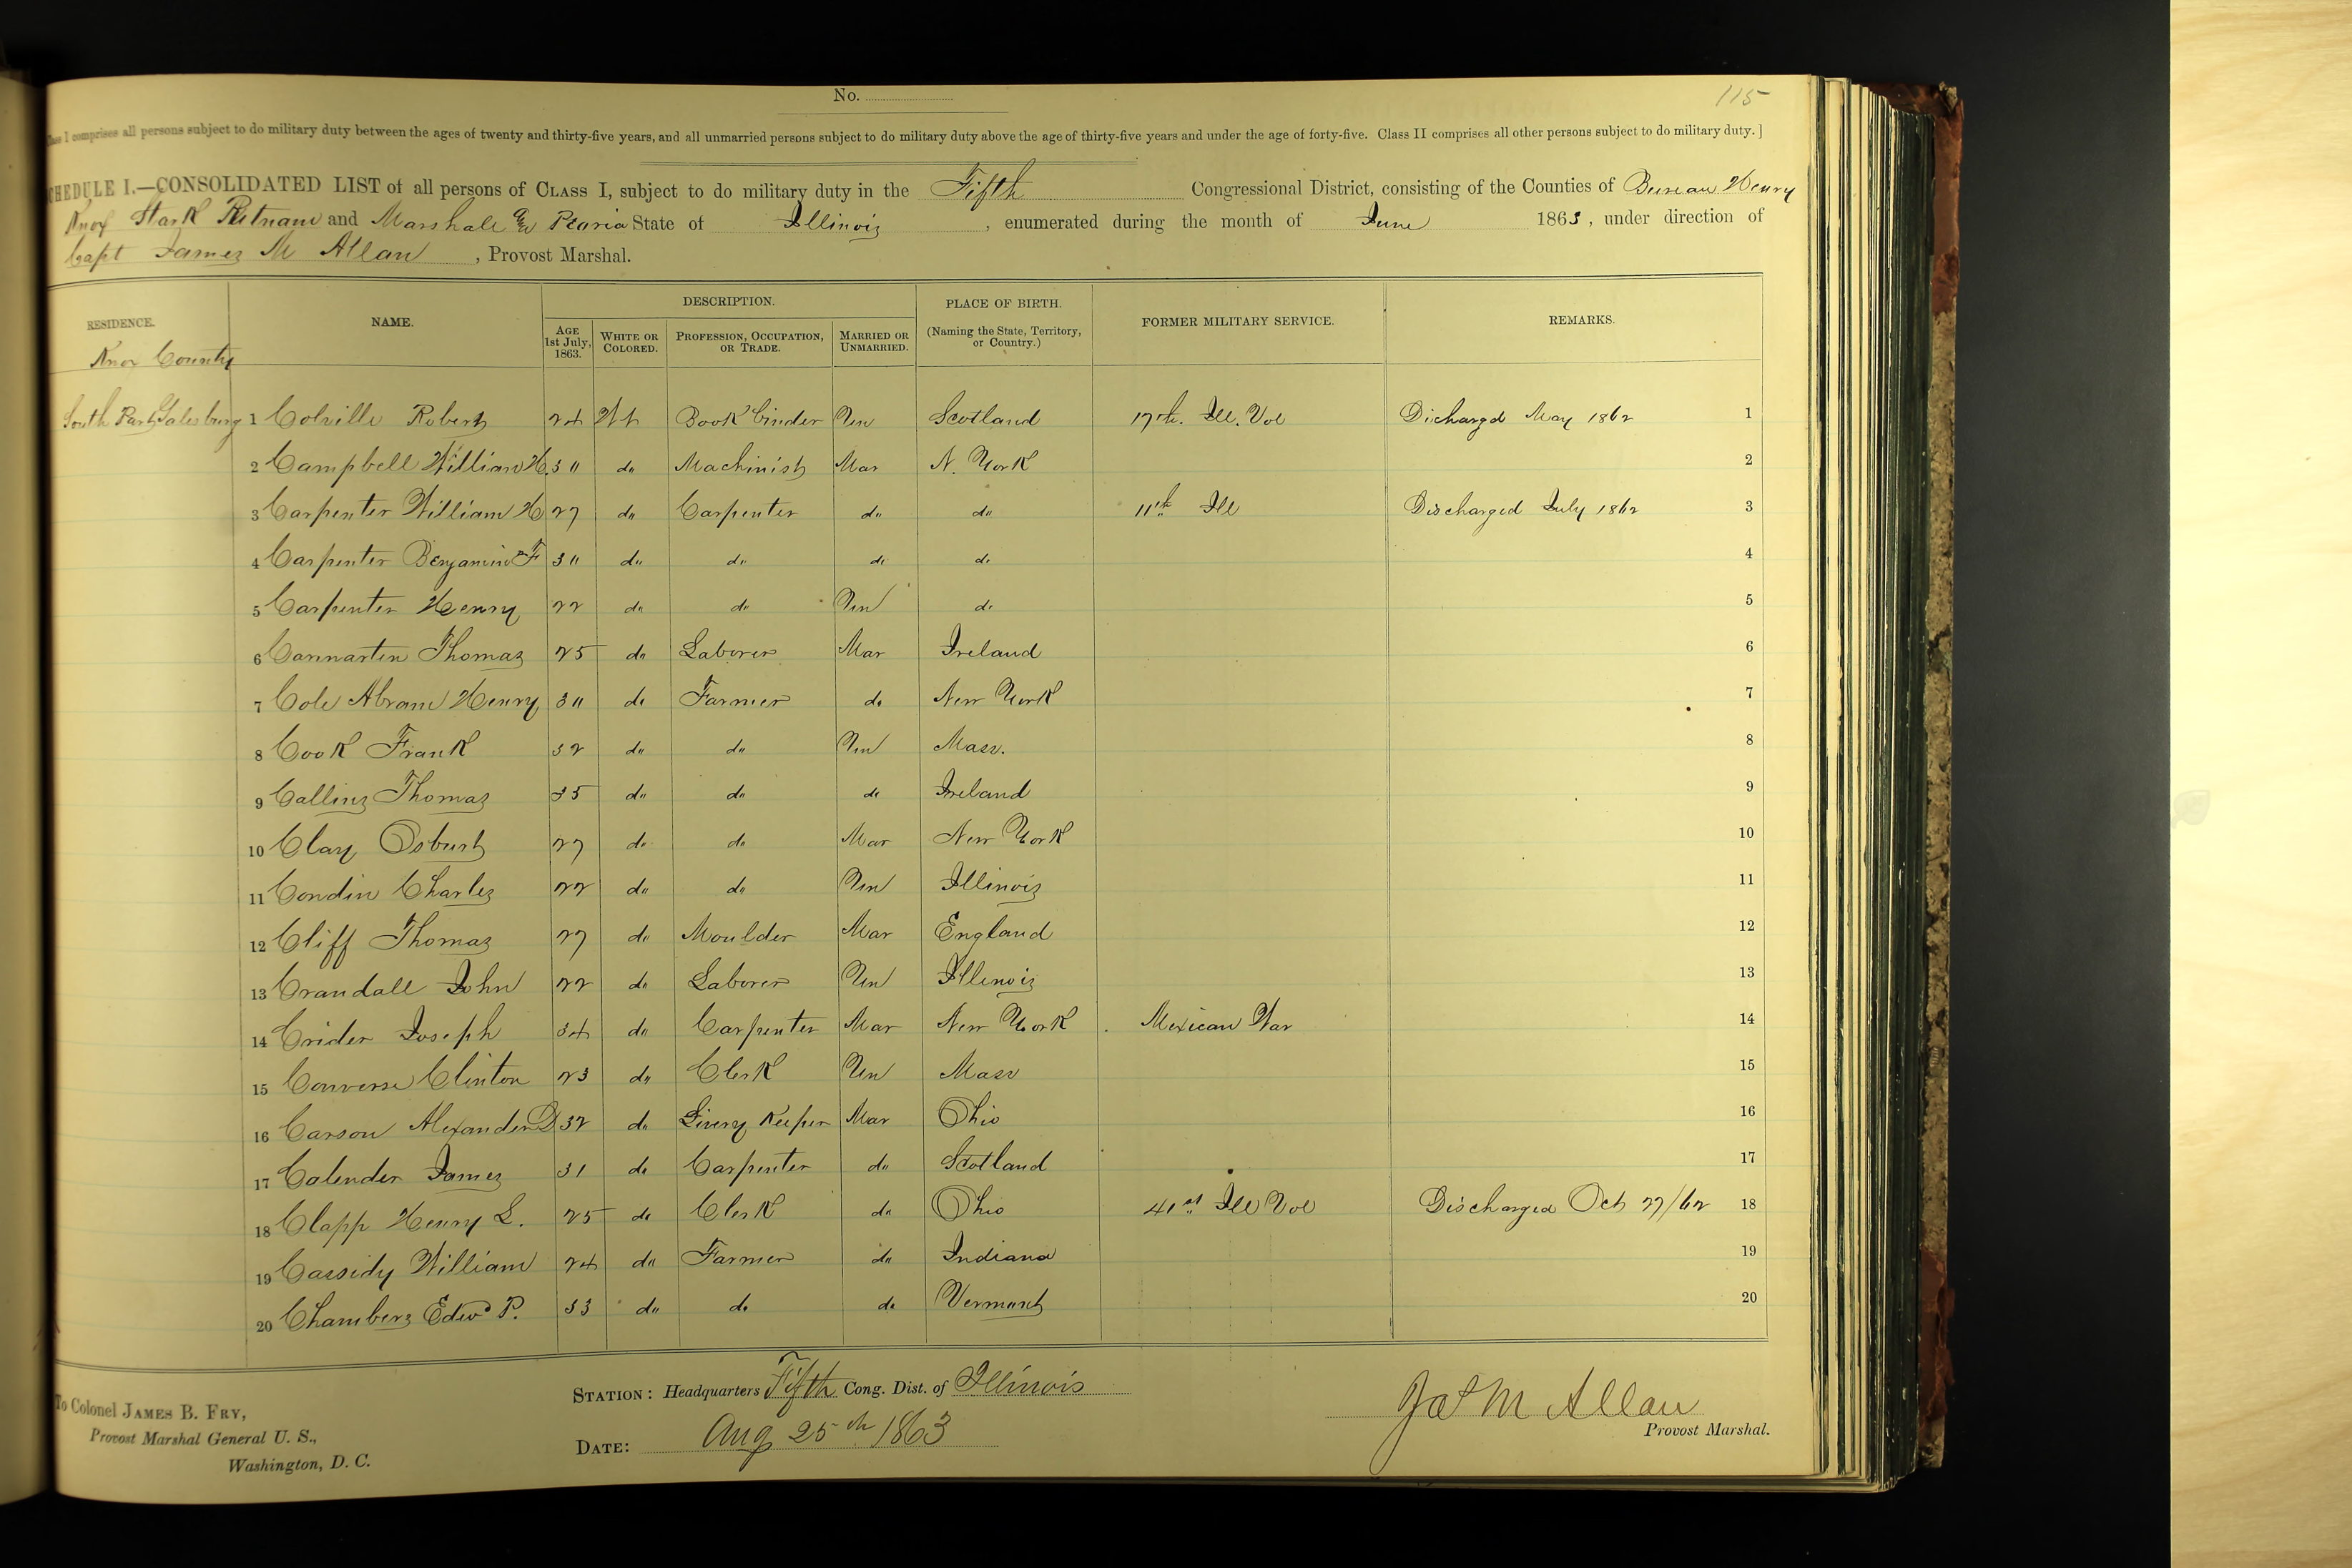 No.
115
Class I comprises all persons subject to do military duty between the ages of twenty and thirty-five years, and all unmarried persons subject to do military duty above the age of thirty-five years and under the age of forty-five. Class II comprises all other persons subject to do military duty. ]
SCHEDULE I.—CONSOLIDATED LIST of all persons of CLASS I, subject to do military duty in the Fifth Congressional District, consisting of the Counties of Bureau Henry
Knox Stark Putnam and Marshall & Peoria State of Illinois, enumerated during the month of June 1863, under direction of
Capt James M Allan, Provost Marshal.
RESIDENCE. NAME. DESCRIPTION. PLACE OF BIRTH. (Naming the State, Territory, or Country.) FORMER MILITARY SERVICE. REMARKS.
AGE 1st July, 1863. WHITE OR COLORED. PROFESSION, OCCUPATION, OR TRADE. MARRIED OR UNMARRIED.
Knox County
South Part Galesburg 1 Colville Robert 24 Wt Book binder Un Scotland 17th. Ill. Vol Dicharged May 1862 1
2 Campbell William H. 30 do Machinist Mar N. York 2
3 Carpenter William H 27 do Carpenter do do 11th Ill Discharged July 1862 3
4 Carpenter Benjamin F 30 do do do do 4
5 Carpenter Henry 22 do do Un do 5
6 Thomas 25 do Laborer Mar Ireland 6
7 Cole Abram Henry 30 do Farmer do New York 7
8 Cook Frank 32 do do Un Mass. 8
9 Callins Thomas 35 do do do Ireland 9
10 Clay Osburt 27 do do Mar New York 10
11 Condin Charles 22 do do Un Illinois 11
12 Cliff Thomas 27 do Moulder Mar England 12
13 Crandall John 22 do Laborer Un Illinois 13
14 Crider Joseph 34 do Carpenter Mar New York Mexican War 14
15 Converse Clinton 23 do Clerk Un Mass 15
16 Carson Alexander D 32 do Livery Keeper Mar Ohio 16
17 Calender James 31 do Carpenter do Scotland 17
18 Clapp Henry L. 25 do Clerk do Ohio 41st Ill Vol Discharged Oct 27/62 18
19 Cassidy William 24 do Farmer do Indiana 19
20 Chambers Edwd P. 33 do do do Vermont 20
To Colonel JAMES B. FRY,
Provost Marshal General U. S.,
Washington, D. C.
STATION: Headquarters Fifth Cong. Dist. of Illinois
DATE: Aug 25th 1863
Jas M Allan
Provost Marshal.